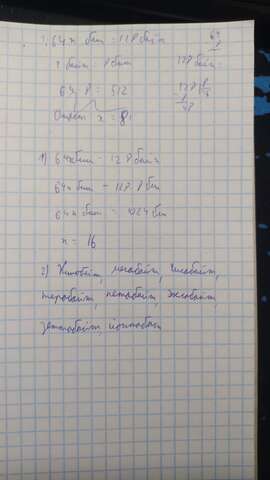 64x бит = 128 байт
1 байт = 8 бит
64x 8 = 512
Ответ x = 8
1) 64x бит = 128 байт
64x бит = 128 · 8 бит
64x бит = 1024 бит
x = 16
2) Килобайт, мегабайт, гигабайт,
терабайт, петабайт, эксабайт,
зеттабайт, йоттабайт